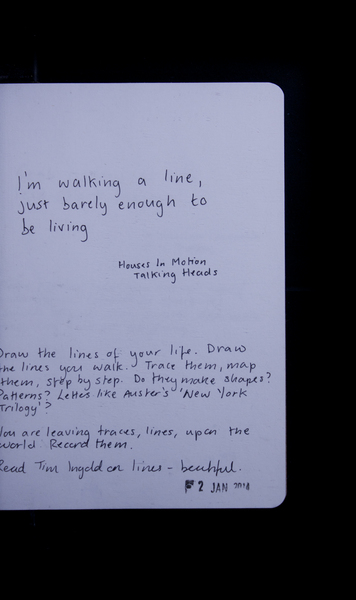 I'm walking a line,
just barely enough to
be living
Houses In Motion
Talking Heads
Draw the lines of your life. Draw
the lines you walk. Trace them, map
them, step by step. Do they make shapes?
Patterns? Letters like Auster's 'New York
Trilogy'?
You are leaving traces, lines, upon the
world. Record them.
Read Tim Ingold on lines - beautiful.
2 JAN 2014